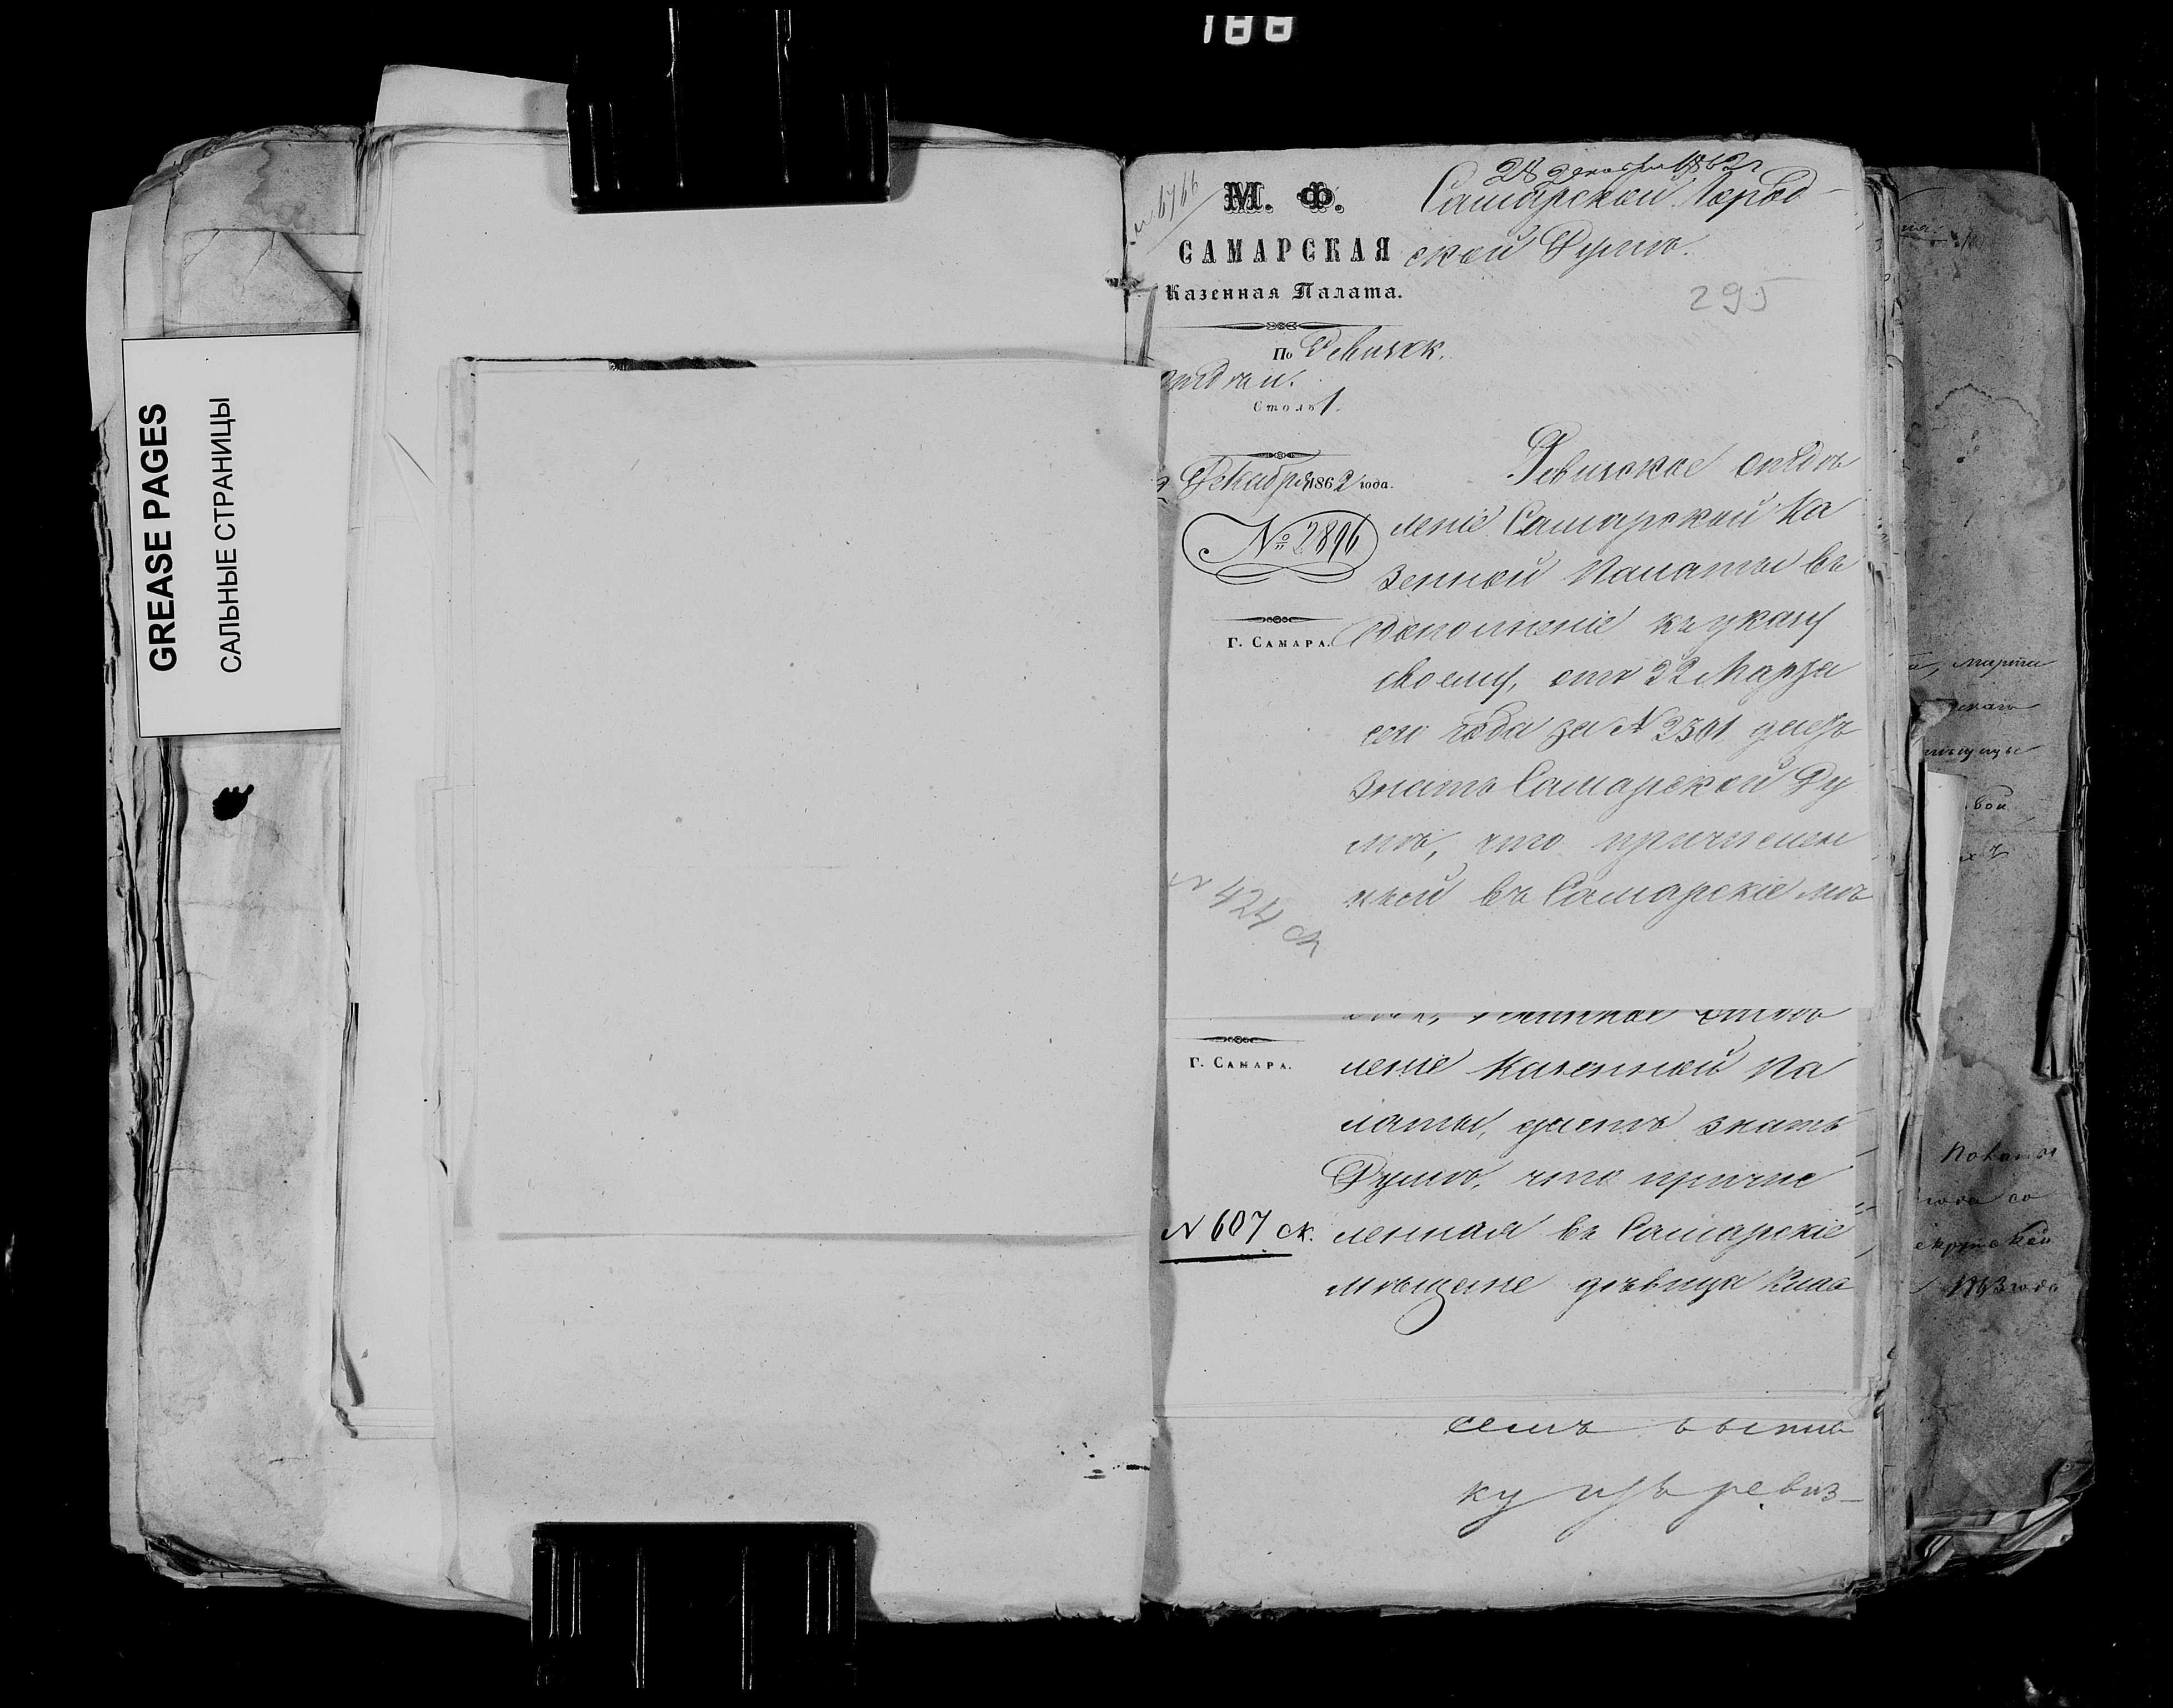 188
GREASE PAGES
САЛЬНЫЕ СТРАНИЦЫ
М. Ф.
САМАРСКАЯ
Казенная Палата.
По Ревизск.
Столъ 1.
Декабря 1862 года.
№ 2896
Г. САМАРА.
28 декабря 1862 г
Самарской Город-
ской Думѣ.
295
Ревизское отдѣ
леніе Самарской Ка
зенной Палаты въ
дополненіе къ указу
своему, отъ 22 Марта
сего года за № 2301 даетъ
знать Самарской Ду
мѣ, что причислен
ной въ Самарскіе мѣ
N 424 ск
Г. САМАРА.
леніе Казенной Па
латы, даетъ знать
Думѣ, что причис
N 607 ск.
ленная въ Самарскіе
мѣщане дѣвица
ку изъ ревиз-
марта
бой
1863 года